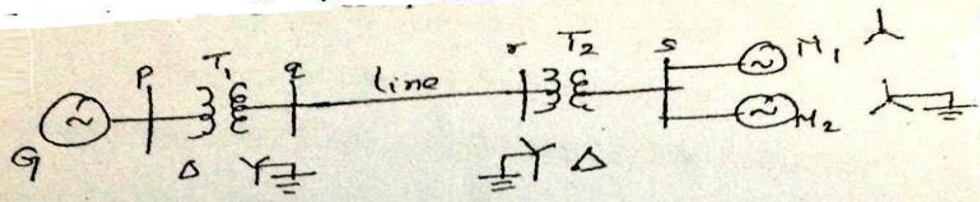 P T₁ q line r T₂ s M₁
G M₂
Δ Y Y Δ